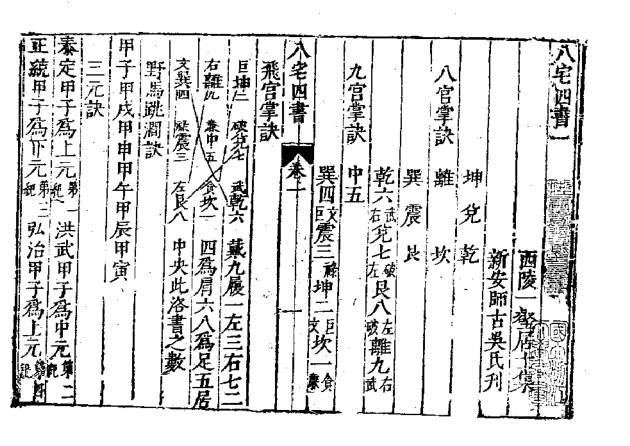 八宅四書一
西陵一壑居士集
新安師古吳氏刋
坤兌乾
八宫掌訣 離 坎
巽震艮
九宫掌訣 乾六武右兌七破左艮八左破離九右武
中五
巽四文巨震三祿坤二巨文坎一食
八宅四書 卷一
飛宫掌訣
巨坤二 破兌七 武乾六 戴九履一左三右七二
右離九 中五 食坎一 四爲肩六八爲足五居
文巽四 祿震三 左艮八 中央此洛書之數
野馬跳澗訣
甲子甲戌甲申甲午甲辰甲寅
三元訣
泰定甲子爲上元第一紀洪武甲子爲中元第二紀
正統甲子爲下元第三紀弘治甲子爲上元第四紀